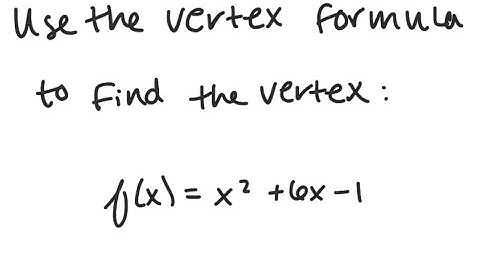 Use the vertex formula
to find the vertex:
f(x) = x² + 6x - 1